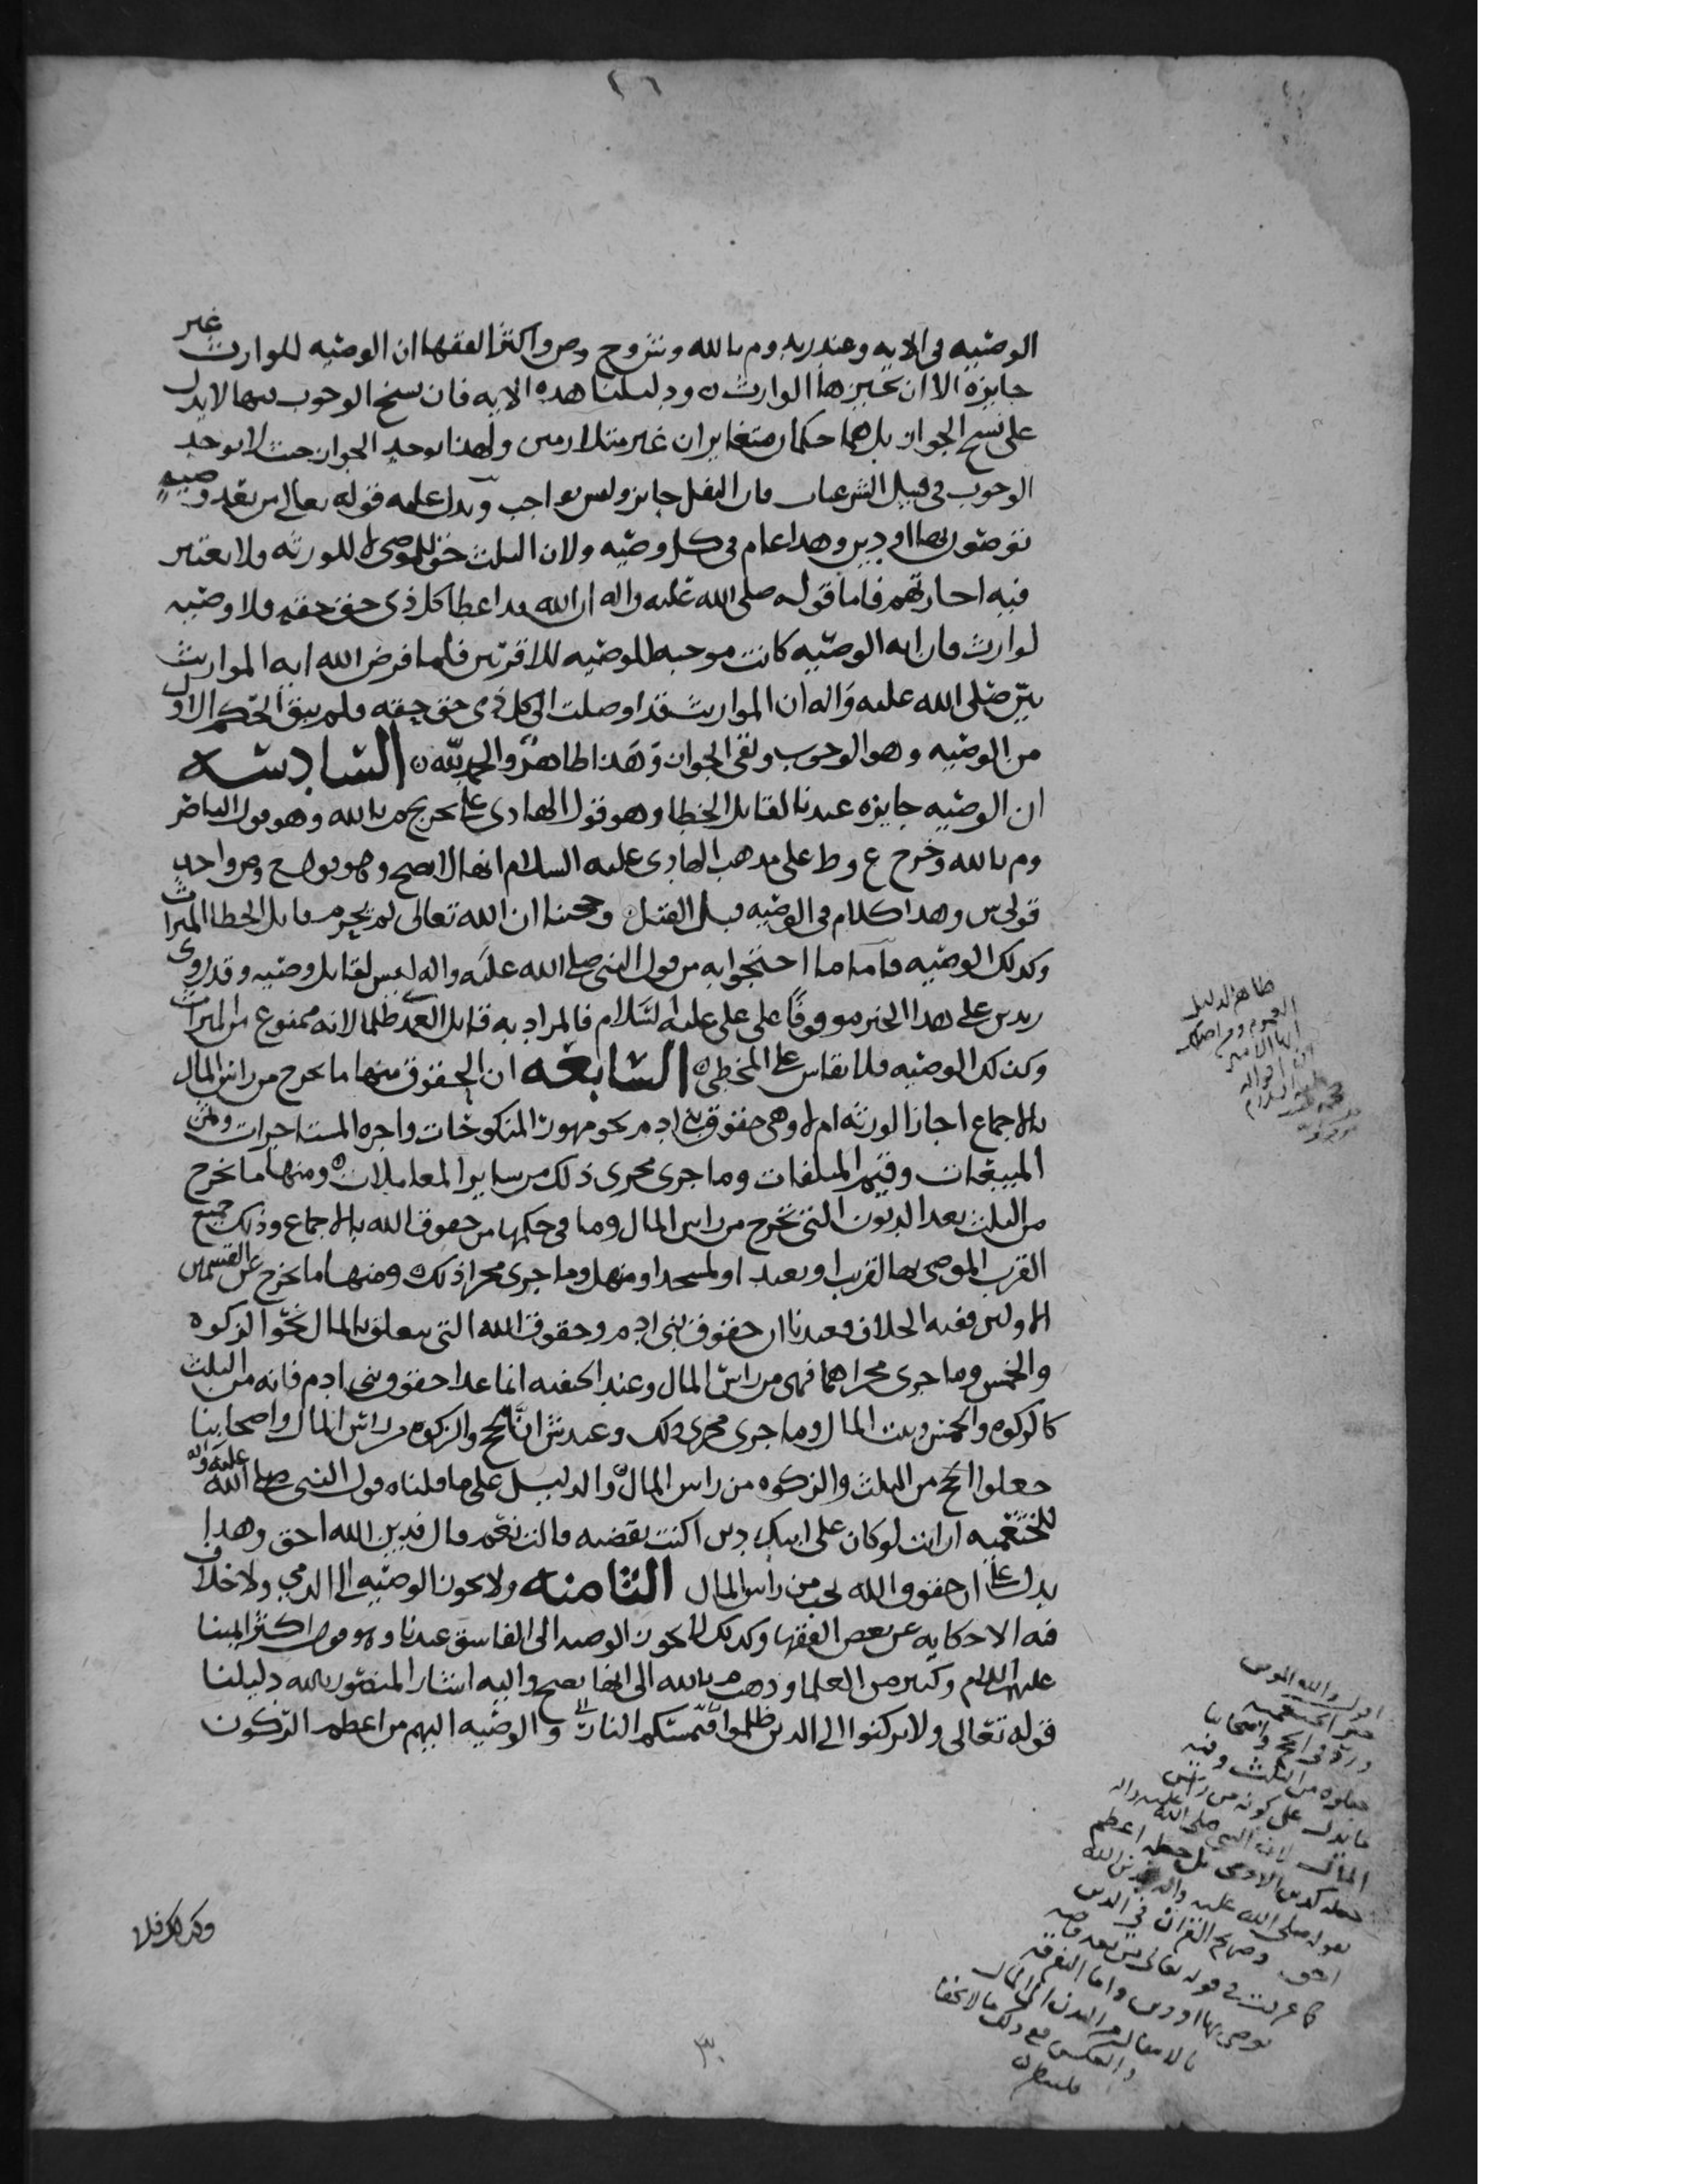 الوصيه في الايه وعند زيد وم بالله وش وح وص واكثر الفقها ان الوصيه للوارث غير
جايزه الا ان يجيزها الوارث ودليلنا هذه الايه فان نسخ الوجوب فيها لا يدل
على نسخ الجواز بل هما حكمان متغايران غير متلازمين ولهذا يوجد الجواز حيث لا يوجد
الوجوب في الشرعيات فان النفل جايز وليس بواجب ويدل عليه قوله تعالى من بعد وصيه
توصون بها او دين وهذا عام في كل وصيه ولان الثلث حق للموصي لا للورثه ولا يعتبر
فيه اجازتهم فاما قوله صلى الله عليه واله ان الله قد اعطا كل ذي حق حقه فلا وصيه
لوارث فان ايه الوصيه كانت موجبه للوصيه للاقربين فلما فرض الله ايه المواريث
بين صلى الله عليه واله ان المواريث قد اوصلت الى كل ذي حق حقه ولم يبق الحكم الاول
من الوصيه وهو الوجوب وبقي الجواز وهذا ظاهر والحمد لله السادسه
ان الوصيه جايزه عندنا لقاتل الخطا وهو قول الهادي على تخريج م بالله وهو قول الناصر
وم بالله وخرج ع وط على مذهب الهادي عليه السلام انها لا تصح وهو قول ح وص واحد
قولي ش وهذا كلام في الوصيه قبل القتل وحجتنا ان الله تعالى لم يحرم قاتل الخطا الميراث
وكذلك الوصيه فاما ما احتجوا به من قول النبي صلى الله عليه واله ليس لقاتل وصيه وقد روى
زيد بن علي هذا الخبر موقوفا على علي عليه السلام فالمراد به قاتل العمد ظلما لانه ممنوع من الميراث
وكذلك الوصيه فلا يقاس على المخطي السابعه ان الحقوق منها ما يخرج من راس المال
بالاجماع اجاز الورثه ام لا وهي حقوق بني ادم نحو مهور المنكوحات واجره المستاجرات وثمن
المبيعات وقيم المتلفات وما جرى مجرى ذلك من ساير المعاملات ومنها ما يخرج
من الثلث بعد الديون التي تخرج من راس المال وما في حكمها من حقوق الله بالاجماع وذلك جميع
القرب الموصى بها لقريب او بعيد او لمسجد او منهل وما جرى مجرا ذلك ومنها ما يخرج عن القسمين
الاولين ففيه الخلاف فعندنا ان حقوق بني ادم وحقوق الله التي تتعلق بالمال نحو الزكوه
والخمس وما جرى مجراهما فهي من راس المال وعند الحنفيه ان ما عدا حقوق بني ادم فانه من الثلث
كالزكوه والخمس وبيت المال وما جرى مجرى ذلك وعند ش ان الحج والزكوه من راس المال واصحابنا
جعلوا الحج من الثلث والزكوه من راس المال والدليل على ما قلناه قول النبي صلى الله عليه واله
للخثعميه ارايت لو كان على ابيك دين اكنت تقضيه قالت نعم قال فدين الله احق وهذا
يدل على ان حقوق الله تجب من راس المال الثامنه ولا تجوز الوصيه الى الذمي ولا خلاف
فيه الا حكايه عن بعض الفقها وكذلك لا تجوز الوصيه الى الفاسق عندنا وهو قول اكثر ايمتنا
عليهم السلام وكثير من العلما وذهب م بالله الى انها تصح واليه اشار المنصور بالله دليلنا
قوله تعالى ولا تركنوا الى الذين ظلموا فتمسكم النار والوصيه اليهم من اعظم الركون
وكذلك فلا
ظاهر الدليل
العموم
اقول والله الموفق
خبر الخثعميه
ورد في الحج واصحابنا
جعلوه من الثلث وفيه
ما يدل على كونه من راس
المال لان النبي صلى الله عليه واله
جعله كدين الادمي بل جعله اعظم
بقوله صلى الله عليه واله فدين الله
احق وصريح القران في الدين
كما عرفت في قوله تعالى من بعد وصيه
يوصى بها او دين واما التفرقه
٣٠